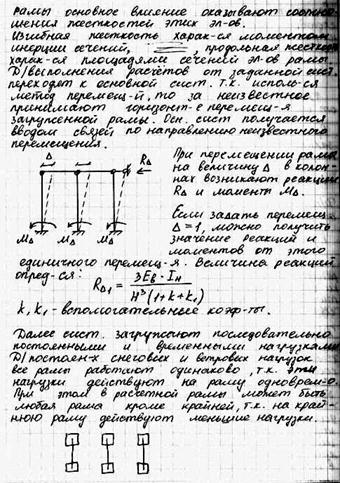 рамы основное влияние оказывают соотно-
шения жесткостей этих эл-ов.
Изгибная жесткость харак-ся моментами
инерции сечений, продольная жесткость
харак-ся площадями сечений эл-ов рамы.
Д/выполнения расчетов от заданной сист.
переходят к основной сист. т.к. использ-ся
метод перемещ-й, то за неизвестное
принимают горизонт-е перемещ-я
загруженной рамы. Осн. сист получается
вводом связей по направлению неизвестного
перемещения.
При перемещении рамы
на величину Δ в колон-
нах возникают реакции
RΔ и моменты MΔ.
Δ
RΔ
MΔ MΔ MΔ
Если задать перемещ.
Δ=1, можно получить
значение реакций и
моментов от этого
единичного перемещ-я. Величина реакций
опред-ся: RΔ1 = 3Eв · Iн / H³(1+k+k₁)
k, k₁ - вспомогательные коэф-ты.
Далее сист. загружают последовательно
постоянными и временными нагрузками
Д/постоян-х снеговых и ветровых нагрузок
все рамы работают одинаково, т.к. эти
нагрузки действуют на раму одноврем-о.
При этом в расчетной рамы может быть
любая рама кроме крайней, т.к. на край-
нюю раму действуют меньшие нагрузки.